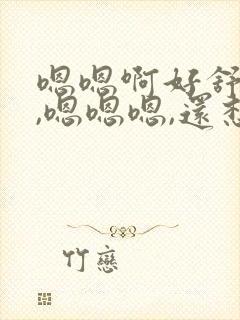 嗯嗯啊好舒
,嗯嗯嗯,還想
竹戀